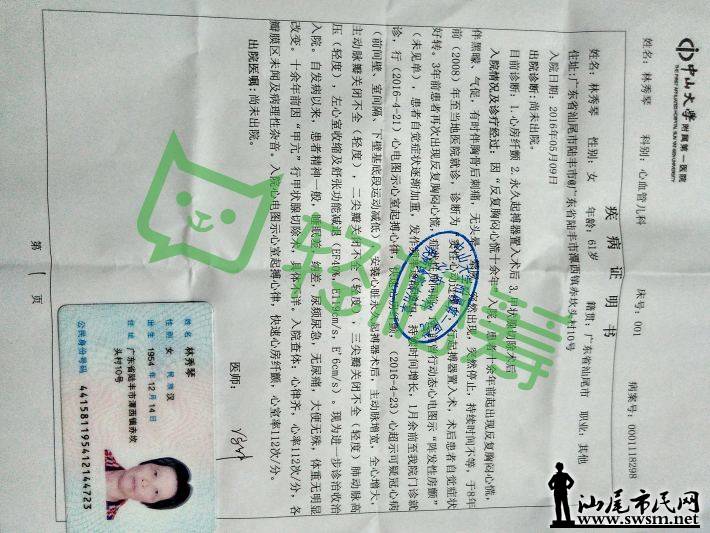 中山大学 附属第一医院
疾病证明书
姓名：林秀琴 科别：心血管儿科 床号：001 病案号：0001118298
姓名：林秀琴 性别：女 年龄：61岁 籍贯：广东省汕尾市 职业：其他
住址：广东省汕尾市陆丰市（广东省陆丰市潭西镇赤坎头村10号
入院日期：2016年05月09日
出院诊断：尚未出院。
目前诊断：1. 心房纤颤 2. 永久起搏器置入术后 3. 甲状腺切除术后
入院情况及诊疗经过：因“反复胸闷心慌十余年”入院。患者十余年前起出现反复胸闷心慌，
伴黑矇、气促，有时伴胸骨后刺痛，无头晕 突然出现，突然停止，持续时间不等，于8年
前（2008）年至当地医院就诊，诊断为 行起搏器置入术，术后患者自觉症状
好转。3年前患者再次出现反复胸闷心慌， 动态心电图示“阵发性房颤”
（未见单），患者自觉症状逐渐加重，发作 持续时间增长，1月余前至我院门诊就
诊，行（2016-4-21）心电图示心室起搏心律， （2016-4-23）心超示可疑冠心病
（前间壁、室间隔、下壁基底段运动减低）安装心脏永久起搏器术后，主动脉增宽，全心增大，
主动脉瓣关闭不全（轻度），二尖瓣关闭不全（轻度），三尖瓣关闭不全（轻度）肺动脉高
压（轻度），左心室收缩及舒张功能减退（EF40%，E119cm/s，E'6cm/s）。现为进一步诊治收治
入院。自发病以来，患者精神一般，睡眠差，纳差，尿频尿急，无尿痛，大便无殊，体重无明显
改变。十余年前因“甲亢”行甲状腺切除术，具体不详。入院查体：心律齐，心率112次/分，各
瓣膜区未闻及病理性杂音。入院心电图示心室起搏心律，快速心房纤颤，心室率112次/分。
出院医嘱：尚未出院。
医师：
第 1 页
姓名 林秀琴
性别 女 民族 汉
出生 1954 年 12 月 14 日
住址 广东省陆丰市潭西镇赤坎
头村10号
公民身份号码 441581195412144723
汕尾市民网
www.swsm.net